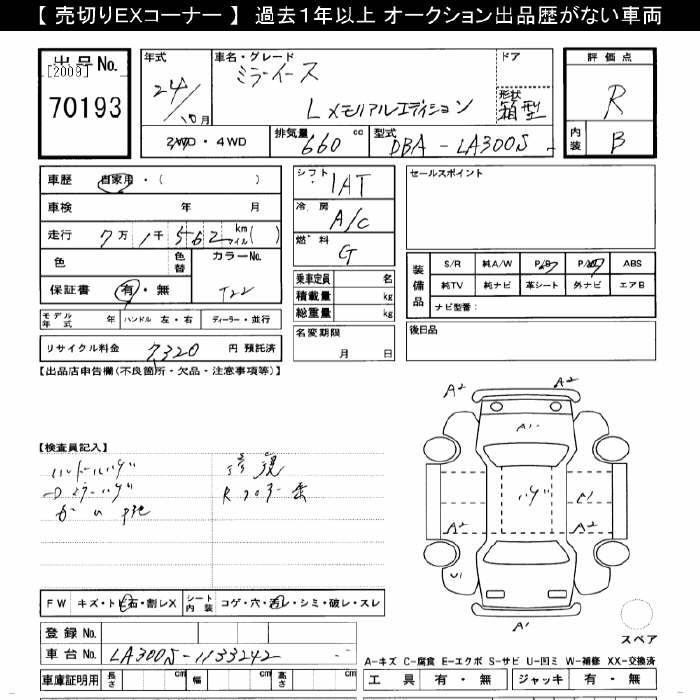 【 売切りEXコーナー 】 過去1年以上 オークション出品歴がない車両
出品No.
[2009]
70193
年式
24/10月
2WD・4WD
車名・グレード
ミライース
L メモリアルエディション
ドア
形状
箱型
排気量
660 cc
型式
DBA - LA300S -
評価点
R
内装
B
車歴 自家用・( )
車検 年 月
走行 7万 1千 562 km マイル( )
色
色替
カラーNo.
T22
保証書 有・無
モデル年式 年 ハンドル 左・右 ディーラー・並行
リサイクル料金 7320 円 預託済
シフト 1AT
冷房 A/C
燃料 G
乗車定員 名
積載量 kg
総重量 kg
名変期限
月 日
セールスポイント
装備品
S/R 純A/W P/S P/W ABS
純TV 純ナビ 革シート 外ナビ エアB
ナビ型番:
後日品
【出品店申告欄(不良箇所・欠品・注意事項等)】
【検査員記入】
ハンドルハゲ
修復
A2 A2
A1
ハゲ
A1
A2 A2
U1
A1
スペア
FW キズ・トビ石・割レX シート内装 コゲ・穴・汚レ・シミ・破レ・スレ
登録No.
車台No. LA300S-1133242
車庫証明用 長さ cm 幅 cm 高さ cm
A-キズ C-腐食 E-エクボ S-サビ U-凹ミ W-補修 XX-交換済
工具 有・無 ジャッキ 有・無